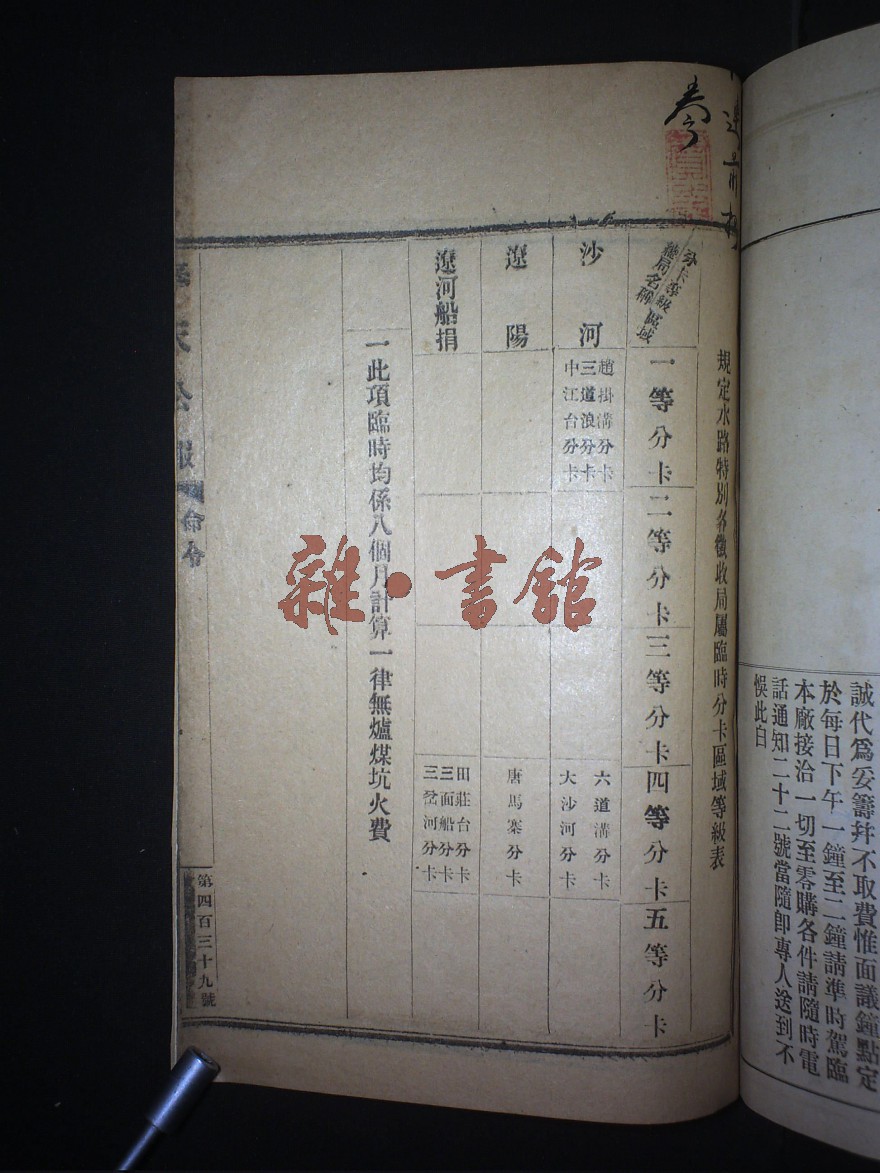 誠代爲妥籌并不取費惟面議鐘點定
於每日下午一鐘至二鐘請準時駕臨
本廠接洽一切至零購各件請隨時電
話通知二十二號當隨卽專人送到不
悞此白
規定水路特別各徵收局屬臨時分卡區域等級表
分卡等級區域
總局名稱
一等分卡
二等分卡
三等分卡
四等分卡
五等分卡
沙河
趙掛溝分卡
三道浪分卡
中江台分卡
六道溝分卡
大沙河分卡
遼陽
唐馬寨分卡
遼河船捐
田莊台分卡
三面船分卡
三岔河分卡
一此項臨時均係八個月計算一律無爐煤坑火費
天公報
命令
第四百三十九號
雜·書館